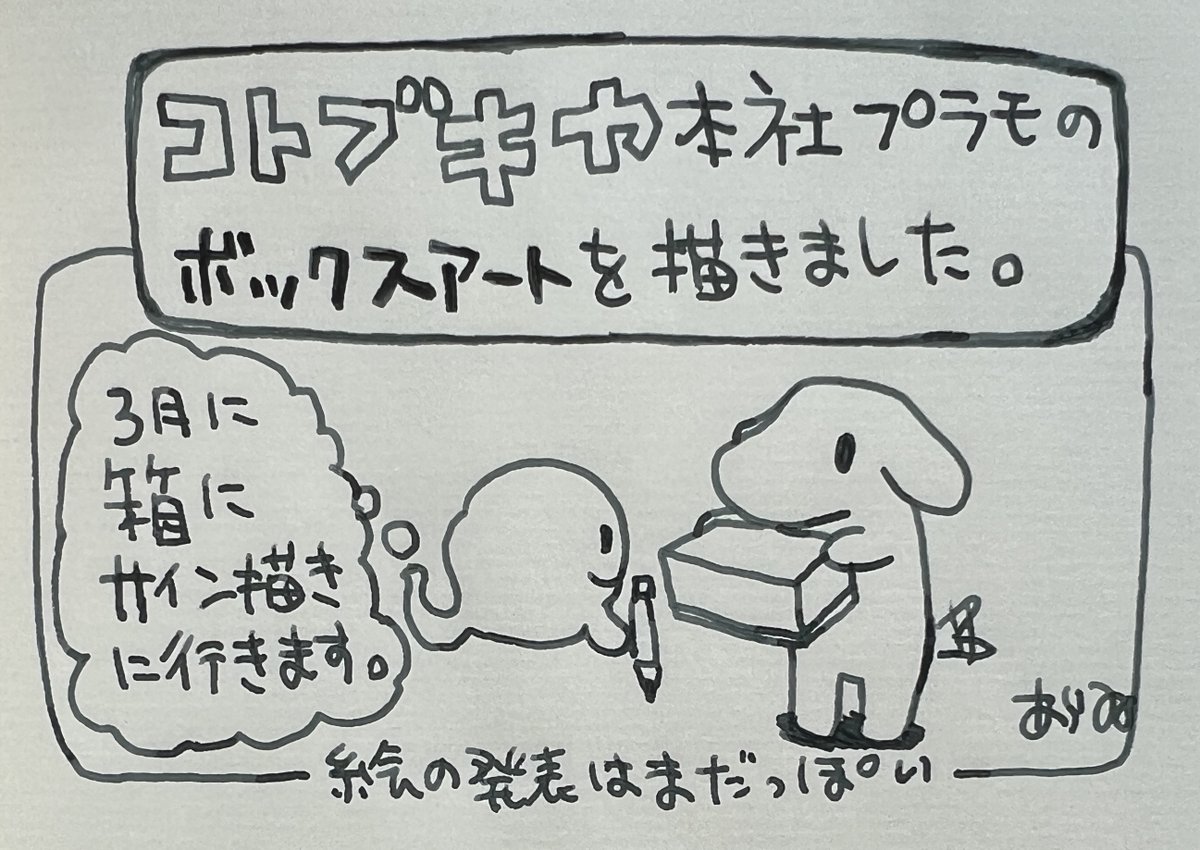 コトブキヤ本社プラモの
ボックスアートを描きました。
3月に
箱に
サイン描き
に行きます。
絵の発表はまだっぽい